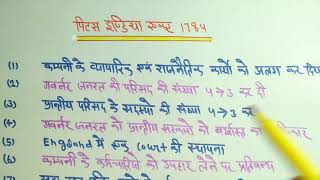 पिटस इण्डिया एक्ट 1784
(1) कम्पनी के व्यापारिक एवं राजनैतिक कार्यो को अलग कर दिया
(2) गवर्नर जनरल की परिषद की संख्या 4→3 कर दी
(3) प्रान्तीय परिषद के सदस्यो की संख्या 4→3 कर
(4) गवर्नर जनरल को प्रान्तीय सरकारो को बर्खास्त
(5) England में एक Court की स्थापना
(6) कम्पनी के कर्मचारियो को उपहार लेने पर प्रतिबन्ध